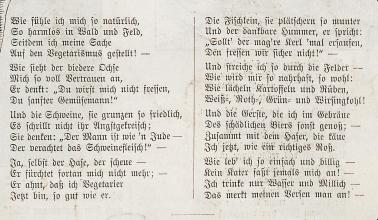 Wie fühle ich mich so natürlich,
So harmlos in Wald und Feld,
Seitdem ich meine Sache
Auf den Vegetarismus gestellt! —
Wie sieht der biedere Ochse
Mich so voll Vertrauen an,
Er denkt: „Du wirst mich nicht fressen,
Du sanfter Gemüsemann!“
Und die Schweine, sie grunzen so friedlich,
Es schrillt nicht ihr Angstgekreisch;
Sie denken: „Der Mann ist wo 'n Jude —
Der verachtet das Schweinefleisch!“ —
Ja, selbst der Hase, der scheue —
Er fürchtet fortan mich nicht mehr; —
Er ahnt, daß ich Vegetarier
Jetzt bin, so gut wie er.
Die Fischlein, sie plätschern so munter
Und der dankbare Hummer, er spricht:
„Sollt' der mag're Kerl 'mal ersaufen,
Den fressen wir sicher nicht!“ —
Und streiche ich so durch die Felder —
Wie wird mir so nahrhaft, so wohl:
Wie lächeln Kartoffeln und Rüben,
Weiß-, Roth-, Grün- und Wirsingkohl!
Und die Gerste, die ich im Gebräue
Des schädlichen Biers sonst genoß; —
Zusammt mit dem Hafer, sie käue
Ich jetzt, wie ein richtiges Roß.
Wie leb' ich so einfach und billig —
Kein Kater faßt jemals mich an!
Ich trinke nur Wasser und Millich —
Das merkt meinen Versen man an! —